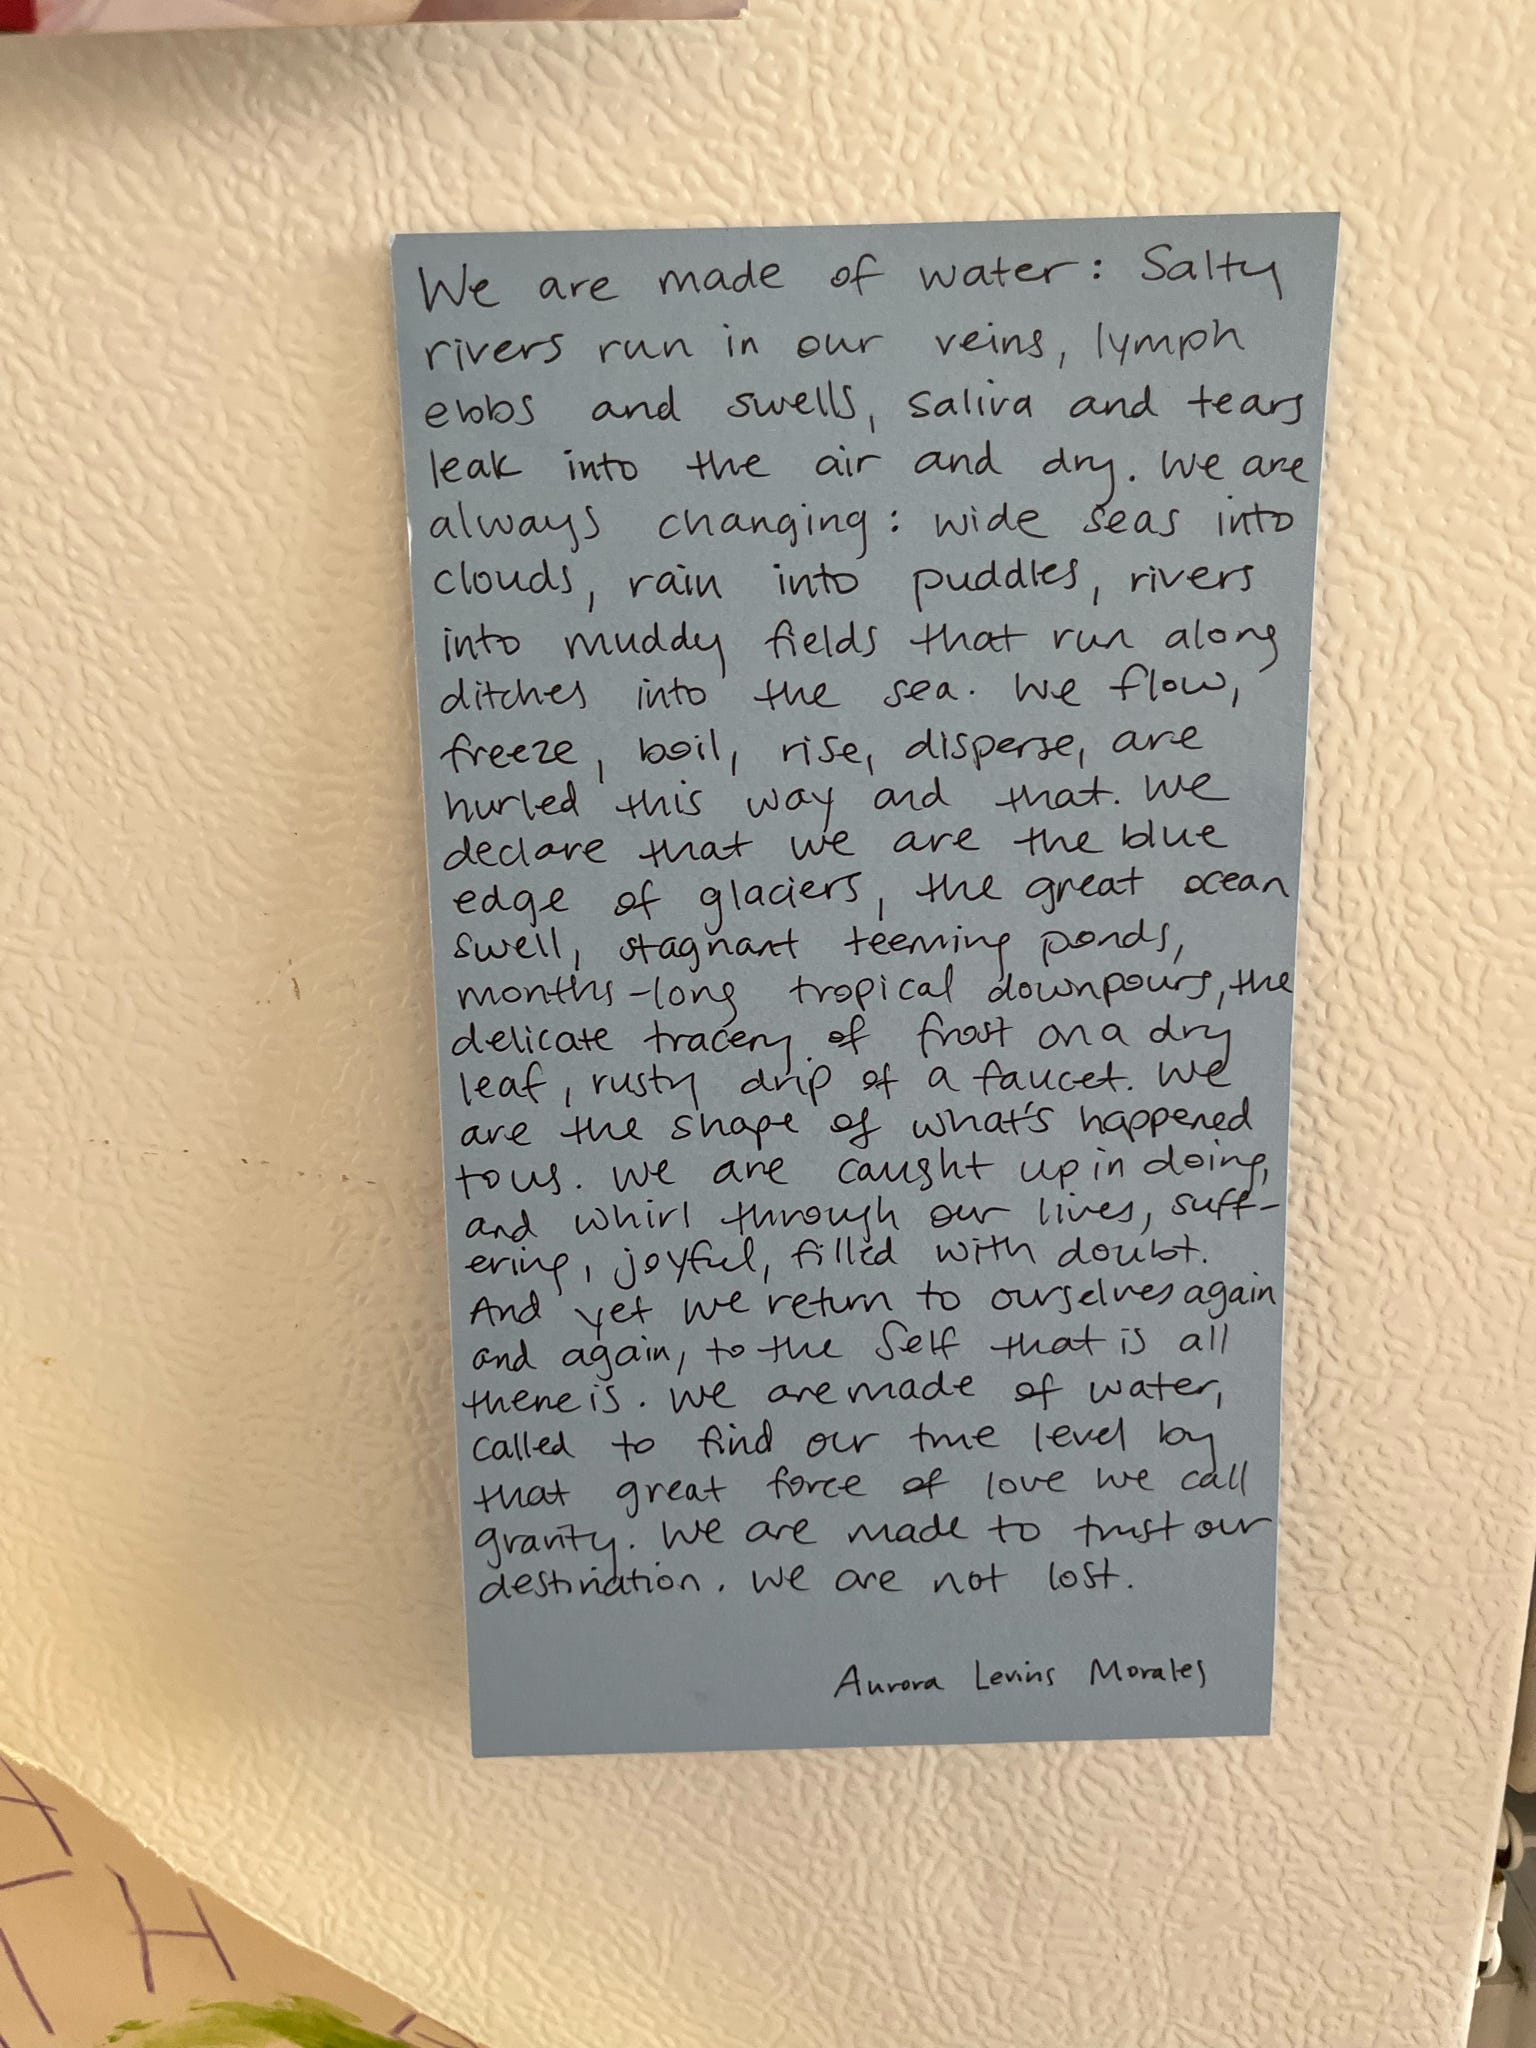 We are made of water: Salty
rivers run in our veins, lymph
ebbs and swells, saliva and tears
leak into the air and dry. We are
always changing: wide seas into
clouds, rain into puddles, rivers
into muddy fields that run along
ditches into the sea. We flow,
freeze, boil, rise, disperse, are
hurled this way and that. We
declare that we are the blue
edge of glaciers, the great ocean
swell, stagnant teeming ponds,
months-long tropical downpours, the
delicate tracery of frost on a dry
leaf, rusty drip of a faucet. We
are the shape of what's happened
to us. We are caught up in doing,
and whirl through our lives, suff-
ering, joyful, filled with doubt.
And yet we return to ourselves again
and again, to the Self that is all
there is. We are made of water,
called to find our true level by
that great force of love we call
gravity. We are made to trust our
destination. We are not lost.
Aurora Levins Morales
H